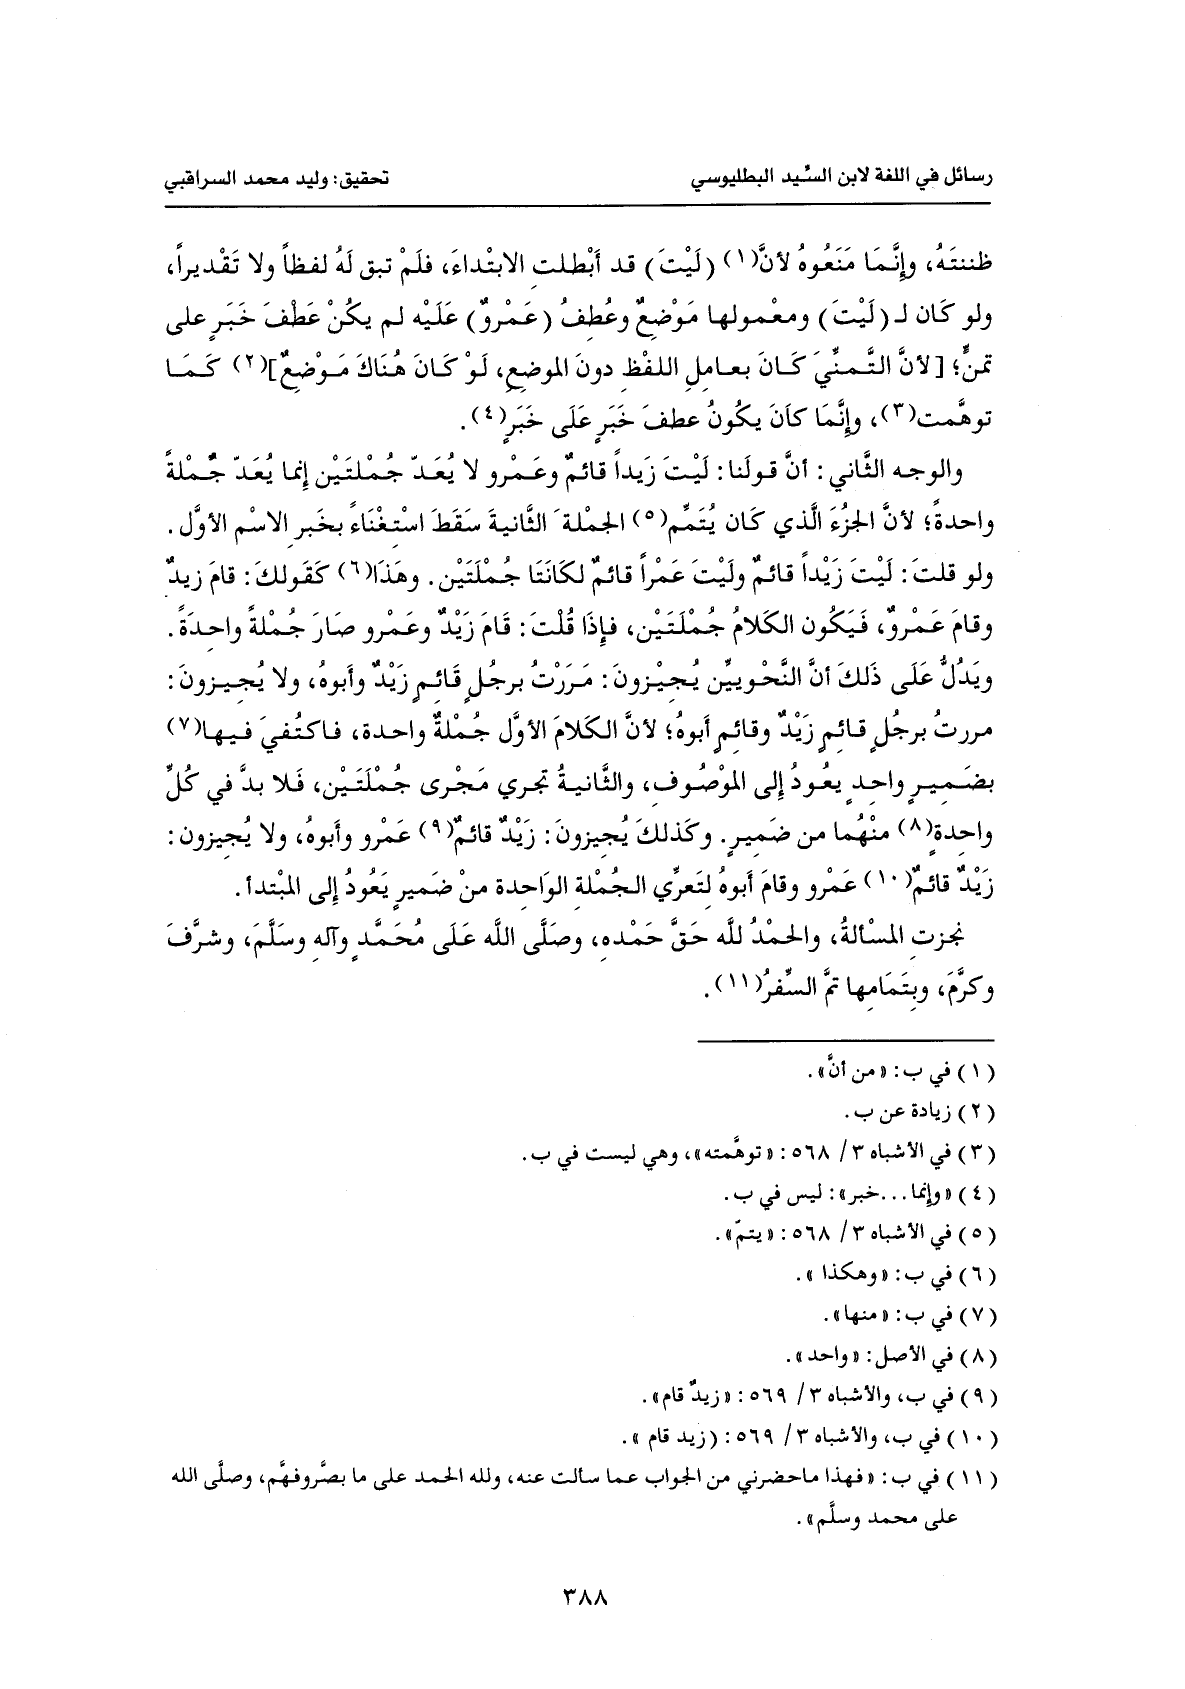 رسائل في اللغة لابن السِّيد البطليوسي
تحقيق: وليد محمد السراقبي
ظننتَهُ، وإِنَّمَا مَنَعُوهُ لأنَّ(١) (لَيْتَ) قد أَبْطلتِ الابتْداءَ، فلَمْ تبق لَهُ لفظاً ولا تَقْديراً،
ولو كَان لـ (لَيْتَ) ومعْمولها مَوْضِعٌ وعُطِفُ (عَمْروٌ) عَلَيْه لم يكُنْ عَطْفَ خَبَر على
تمنٍّ؛ [لأنَّ التَّمنِّيَ كَانَ بعامِلِ اللفْظِ دونَ الموضعِ، لَوْ كَانَ هُنَاكَ مَوْضِعٌ](٢) كَمَا
توهَّمت(٣)، وإِنَّمَا كاَنَ يكُونُ عطفَ خَبَرٍ عَلَى خَبَرٍ(٤).
والوجه الثَّاني: أنَّ قولَنا: لَيْتَ زَيداً قائمٌ وعَمْرو لا يُعَدّ جُمْلتَيْن إِنما يُعَدّ جُملةً
واحدةً؛ لأنَّ الجزُءَ الَّذي كَان يُتَمِّم(٥) الجمْلةَ الثَّانيةَ سَقَطَ اسْتِغْنَاءً بخَبرِ الاسْم الأوَّل.
ولو قلتَ: لَيْتَ زَيْداً قائمٌ ولَيْتَ عَمْراً قائمٌ لكَانَتَا جُمْلَتَيْن. وهَذَا(٦) كَقَولكَ: قامَ زيدٌ
وقامَ عَمْروٌ، فَيَكُون الكَلامُ جُمْلَتَيْن، فإِذَا قُلْتَ: قَامَ زَيْدٌ وعَمرو صارَ جُملةً واحدَةً.
ويَدُلُّ عَلَى ذَلكَ أنَّ النَّحْويِّين يُجيْزونَ: مَرَرْتُ برجُلٍ قَائمٍ زَيْدٌ وأَبوهُ، ولا يُجيزونَ:
مررتُ برجُلٍ قائمٍ زَيْدٌ وقائمٍ أَبوهُ؛ لأنَّ الكَلامَ الأوَّل جُمْلةٌ واحدة، فاكتُفيَ فيها(٧)
بضَميرٍ واحدٍ يعُودُ إِلى الموْصُوفِ، والثَّانيةُ تجري مَجْرى جُمْلَتَيْن، فَلا بدَّ في كُلِّ
واحدةٍ(٨) منْهُما من ضَميرٍ. وكَذلكَ يُجيزونَ: زَيْدٌ قائمٌ(٩) عَمْرو وأَبوهُ، ولا يُجيزون:
زَيْدٌ قائمٌ(١٠) عَمْرو وقامَ أَبوهُ لتَعرِّي الجُمْلة الوَاحدة منْ ضَميرٍ يَعُودُ إِلى المبْتدأ.
نجزتِ المسْألةُ، والحمْدُ للَّه حَقَّ حَمْده، وصَلَّى اللَّه عَلَى مُحَمَّدٍ وآلهِ وسَلَّمَ، وشرَّفَ
وكرَّمَ، وبِتَمَامِها تمَّ السِّفرُ(١١).
(١) في ب: «من أنَّ».
(٢) زيادة عن ب.
(٣) في الأشباه ٣/ ٥٦٨: «توهَّمته»، وهي ليست في ب.
(٤) «وإِنما...خبر»: ليس في ب.
(٥) في الأشباه ٣/ ٥٦٨: «يتمّ».
(٦) في ب: «وهكذا».
(٧) في ب: «منها».
(٨) في الأصل: «واحد».
(٩) في ب، والأشباه ٣/ ٥٦٩: «زيدٌ قام».
(١٠) في ب، والأشباه ٣/ ٥٦٩: (زيد قام».
(١١) في ب: «فهذا ماحضرني من الجواب عما سألت عنه، ولله الحمد على ما بصَّروفهَّم، وصلَّى الله
على محمد وسلَّم».
٣٨٨